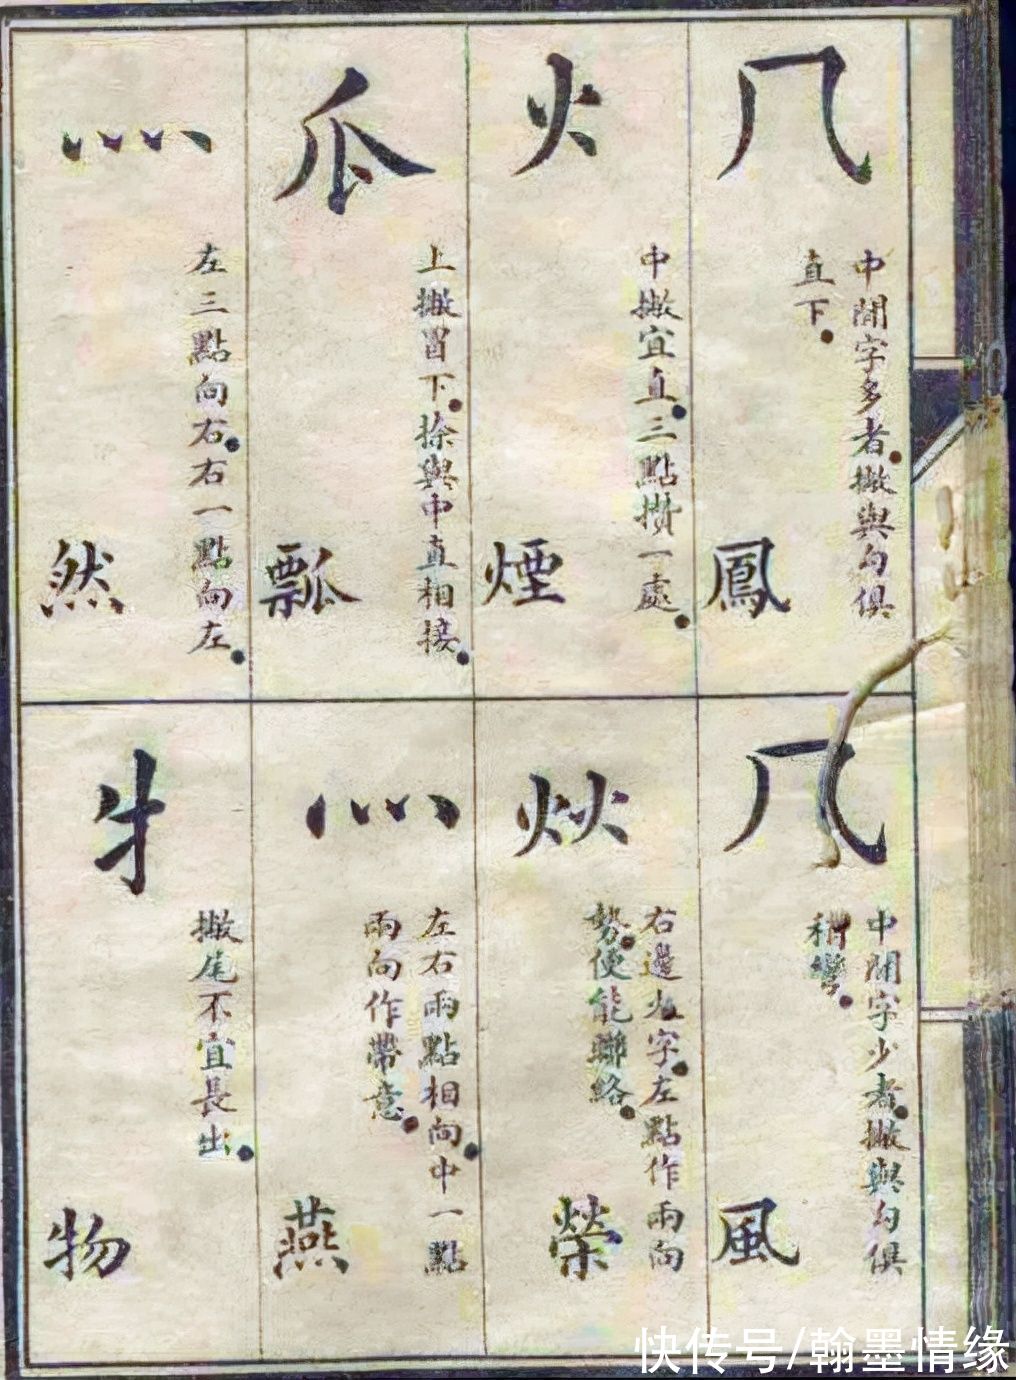 𠘨
中間字多者撇與勾俱
直下
鳳
火
中撇宜直三點攢一處
煙
瓜
上撇冒下捺與中直相接
瓢
灬
左三點向右右一點向左
然
𠘨
中間字少者撇與勾俱
稍彎
風
炏
右邊火字左點作兩向
勢使能聯絡
榮
灬
左右兩點相向中一點
兩向作帶意
燕
牜
撇尾不宜長出
物
快传号/翰墨情缘